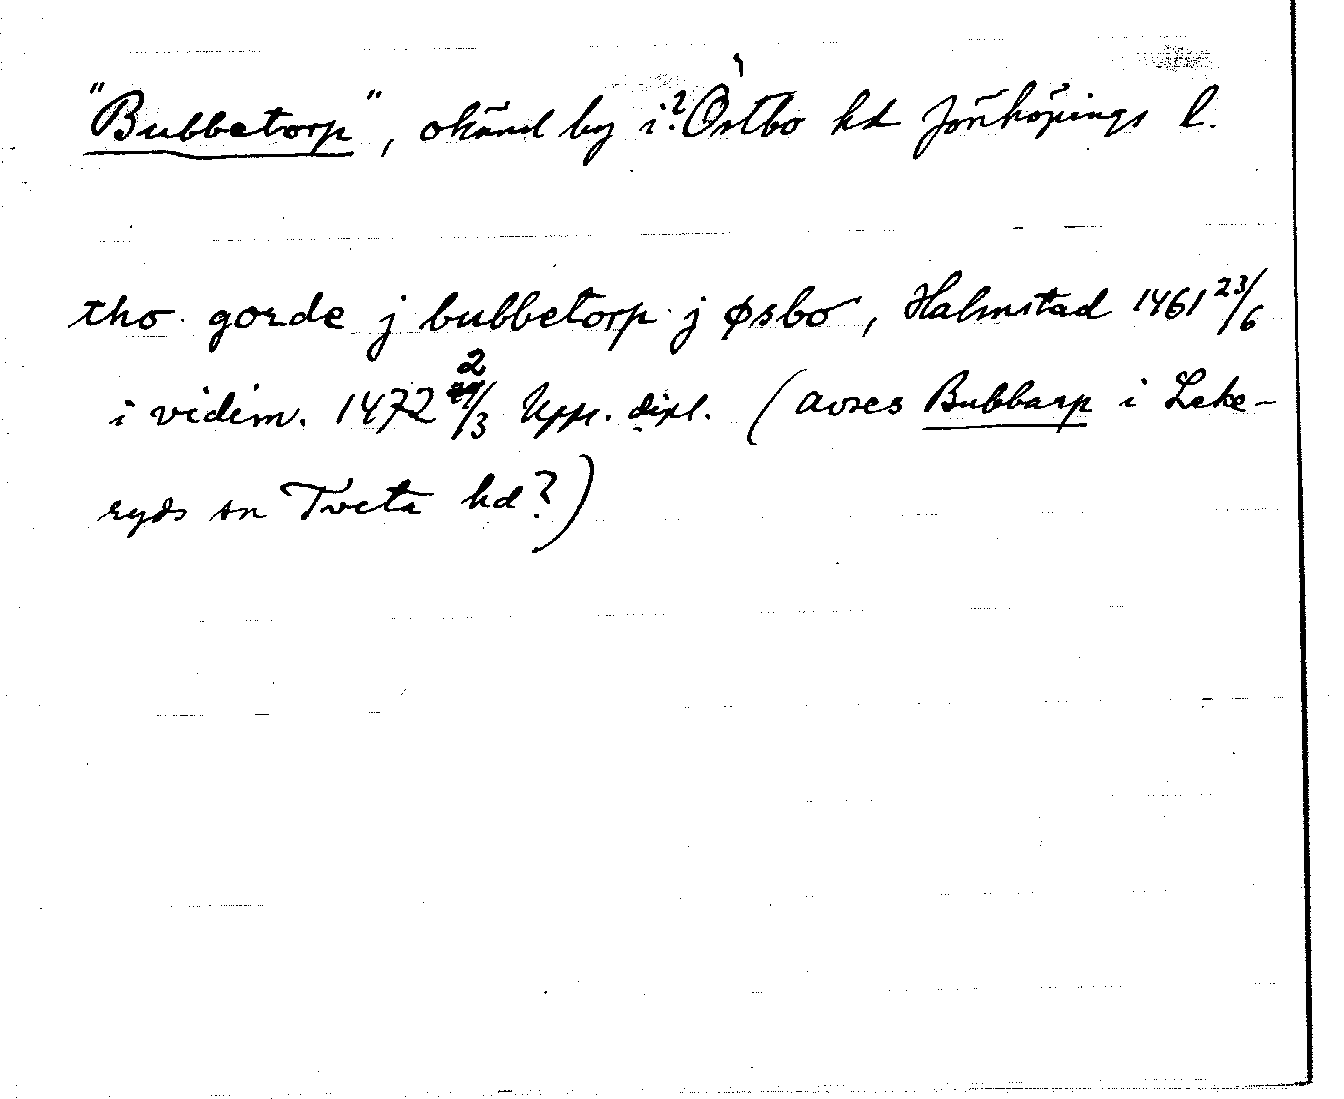 "Bubbetorp", okänd by i? Östbo hd Jönköpings l.
tho gorde j bubbetorp j øsbo, Halmstad 1461 23/6
i vidim. 1472 2/3 Upps. dipl. (avses Bubbarp i Leke-
ryds sn Tveta hd?)